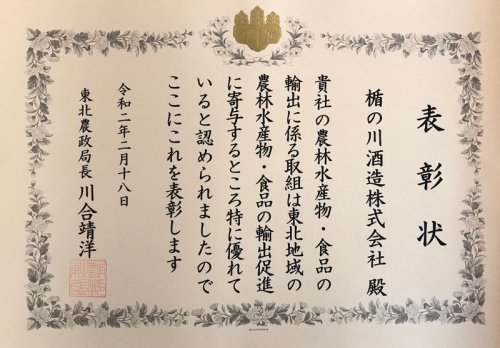 表彰状
楯の川酒造株式会社 殿
貴社の農林水産物・食品の
輸出に係る取組は東北地域の
農林水産物・食品の輸出促進
に寄与するところ特に優れて
いると認められましたので
ここにこれを表彰します
令和二年二月十八日
東北農政局長 川合靖洋